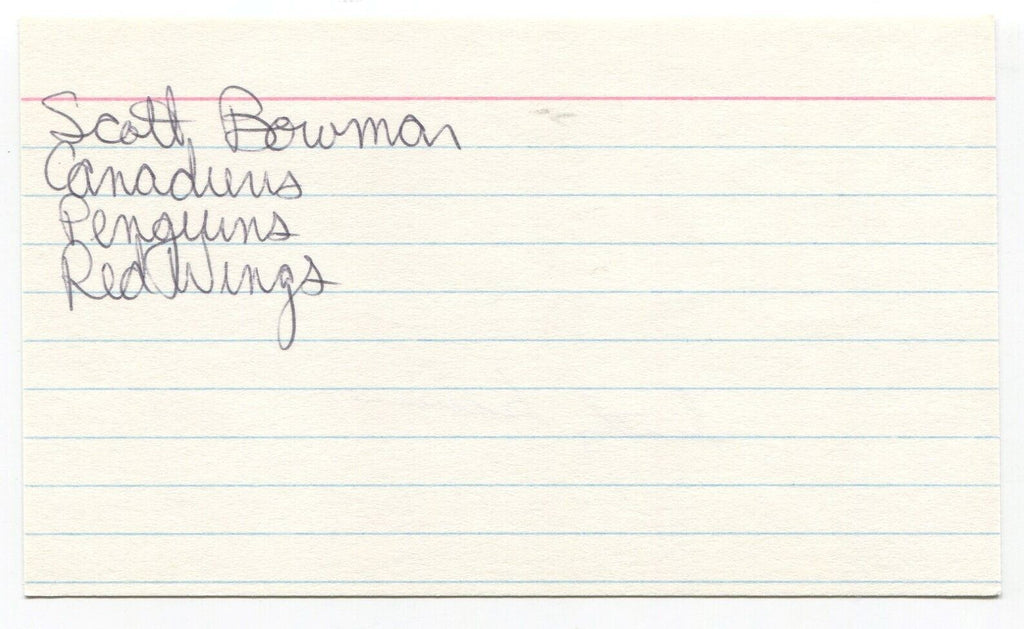 Scott Bowman
Canadiens
Penguins
Red Wings